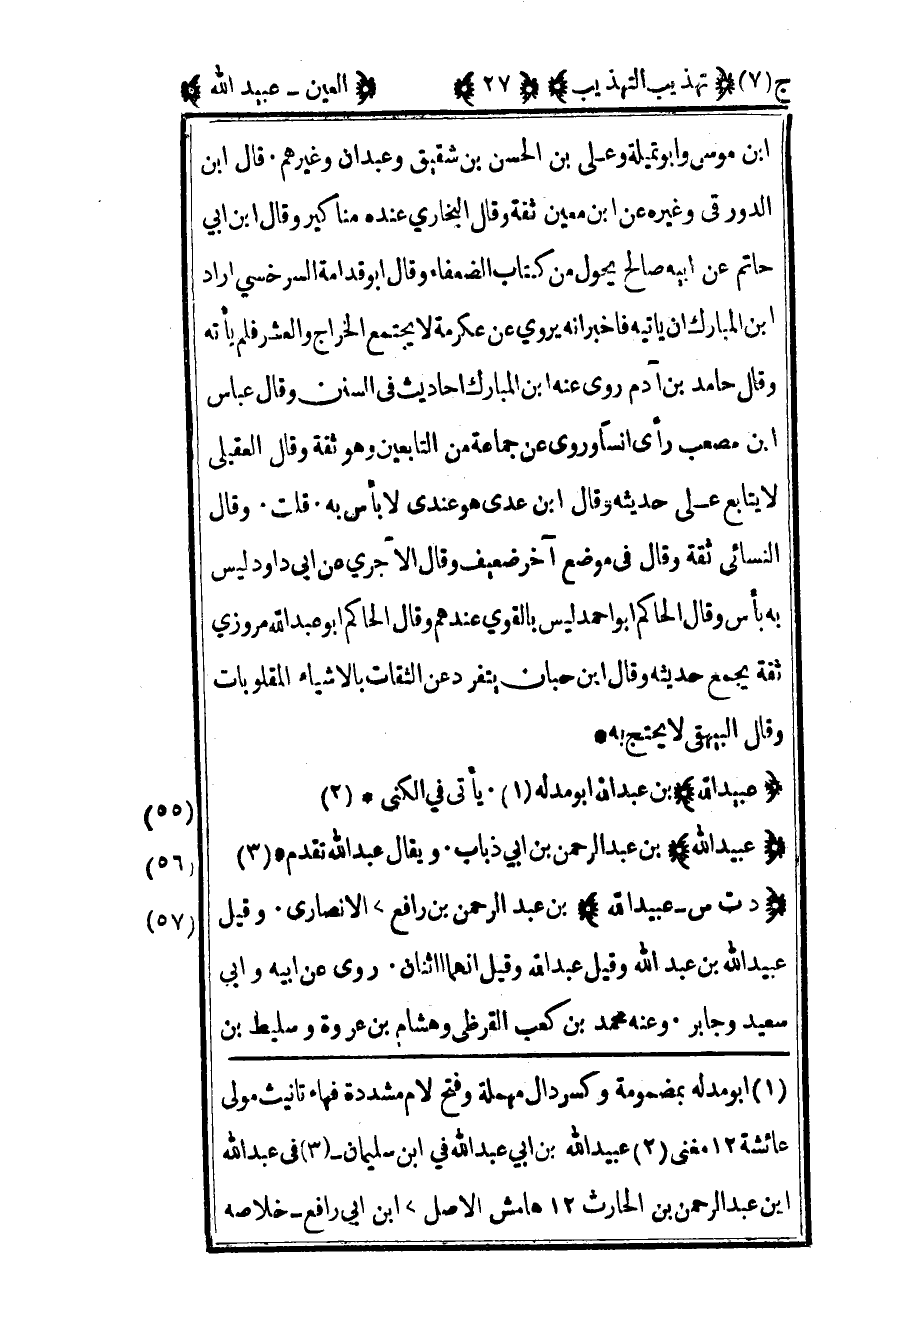 ج (٧) ﴿ تهذيب التهذيب ﴾ ﴿ ٢٧ ﴾ ﴿ العين ـ عبيد الله ﴾
ابن موسى وابو تميلة وعلى بن الحسن بن شقيق وعبدان وغيرهم٠ قال ابن
الدورقى وغيره عن ابن معين ثقة وقال البخاري عنده مناكير وقال ابن ابي
حاتم عن ابيه صالح يحول من كتاب الضعفاء وقال ابو قدامة السرخسي اراد
ابن المبارك ان ياتيه فاخبر انه يروي عن عكرمة لا يجتمع الخراج والعشر فلم يأته
وقال حامد بن آدم روى عنه ابن المبارك احاديث فى السنن وقال عباس
ابن مصعب رأى انسا وروى عن جماعة من التابعين وهو ثقة وقال العقيلى
لا يتابع على حديثه وقال ابن عدى هو عندى لا بأس به ٠ قلت ٠ وقال
النسائي ثقة وقال فى موضع آخر ضعيف وقال الآجري عن ابى داود ليس
به بأس وقال الحاكم ابو احمد ليس بالقوي عندهم وقال الحاكم ابو عبدالله مروزي
ثقة يجمع حديثه وقال ابن حبان يتفرد عن الثقات بالاشياء المقلوبات
وقال البيهقى لا يحتج به *
﴿ عبيدالله ﴾ بن عبدالله ابو مدله (١) ٠ يأتى في الكنى * (٢)
(٥٥)
﴿ عبيدالله ﴾ بن عبدالرحمن بن ابي ذباب ٠ ويقال عبدالله تقدم * (٣)
(٥٦)
﴿ د ت س ـ عبيدالله ﴾ بن عبد الرحمن بن رافع > الانصارى ٠ وقيل
(٥٧)
عبيدالله بن عبد الله وقيل عبدالله وقيل انهما اثنان ٠ روى عن ابيه و ابي
سعيد وجابر ٠ وعنه محمد بن كعب القرظى وهشام بن عروة و سليط بن
(١) ابو مدله بمضمومة وكسر دال مهملة وفتح لام مشددة فهاء تانيث مولى
عائشة ١٢ مغنى (٢) عبيدالله بن ابي عبدالله في ابن سليمان ـ (٣) فى عبدالله
ابن عبدالرحمن بن الحارث ١٢ هامش الاصل > ابن ابي رافع ـ خلاصه